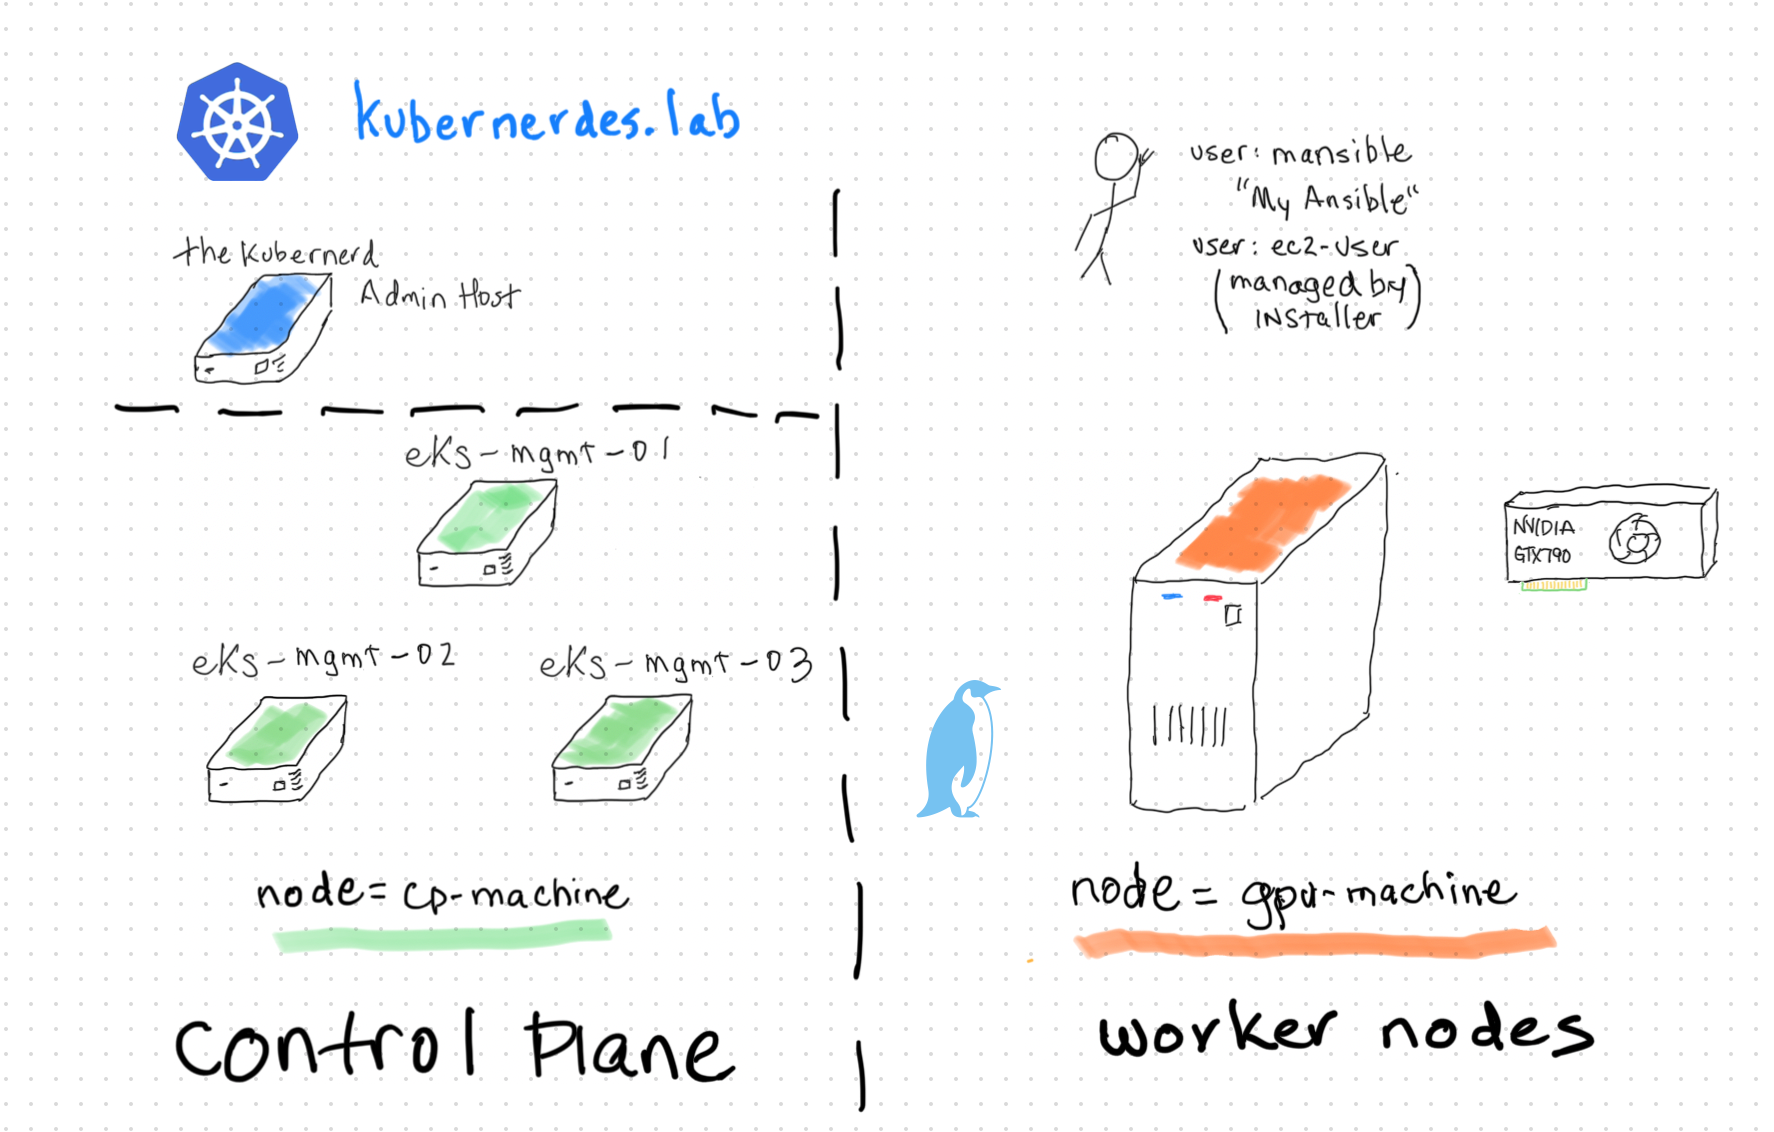 kubernerdes.lab
the Kubernerd
Admin Host
eks-mgmt-01
eks-mgmt-02
eks-mgmt-03
node = cp-machine
Control Plane
user: mansible
"My Ansible"
user: ec2-user
(managed by)
INStaller
NVIDIA
GTX790
node = gpu-machine
worker nodes